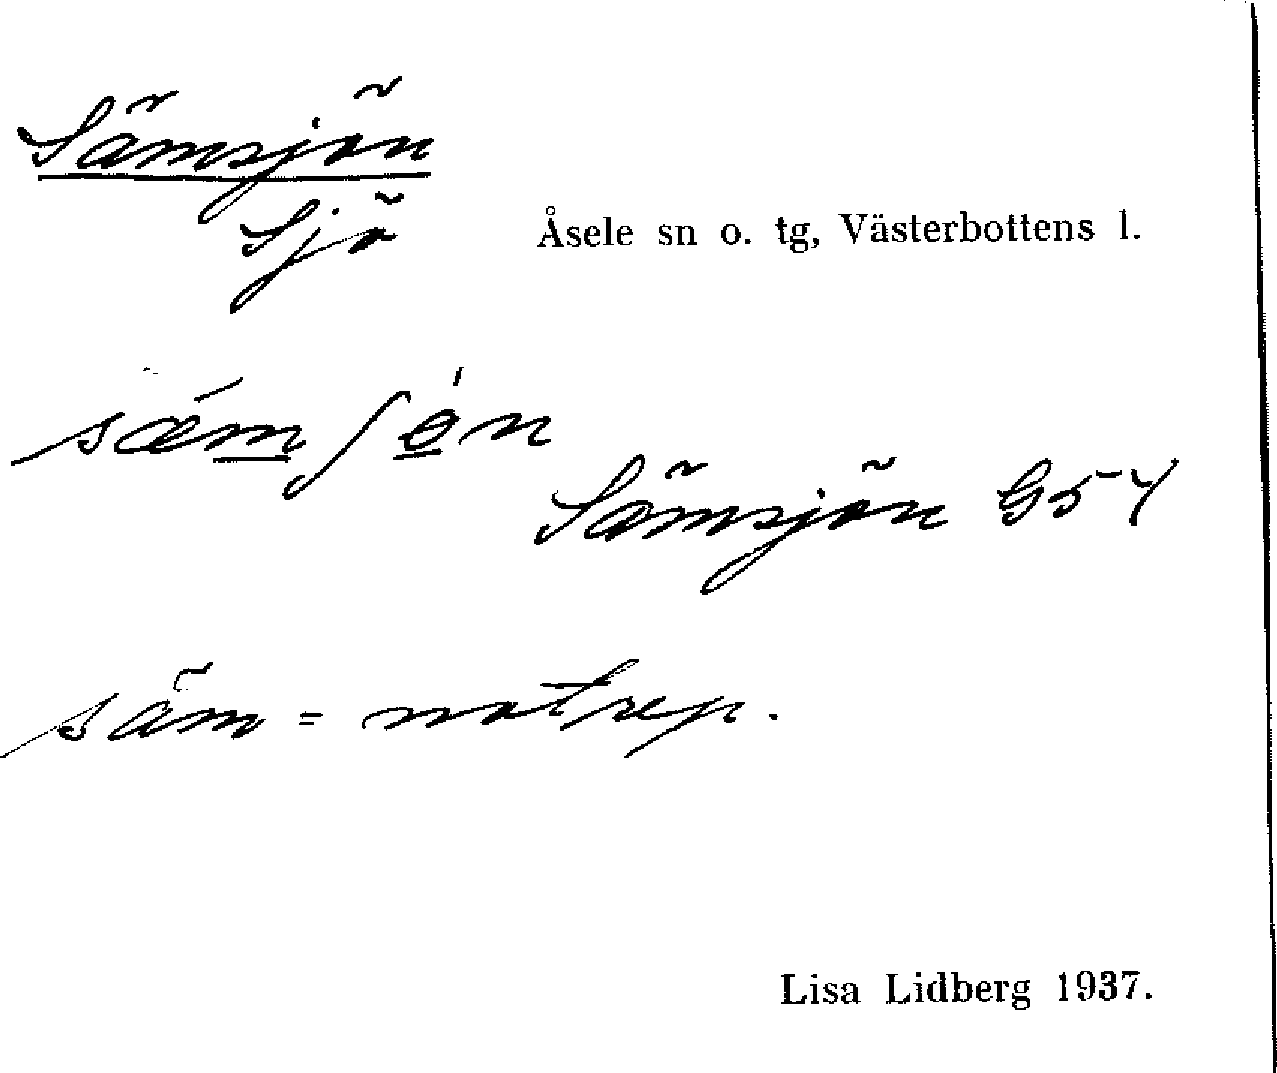 Sämsjön
Sjö
Åsele sn o. tg, Västerbottens l.
sæ̀mʃón
Sämsjön G54
säm = notrep.
Lisa Lidberg 1937.